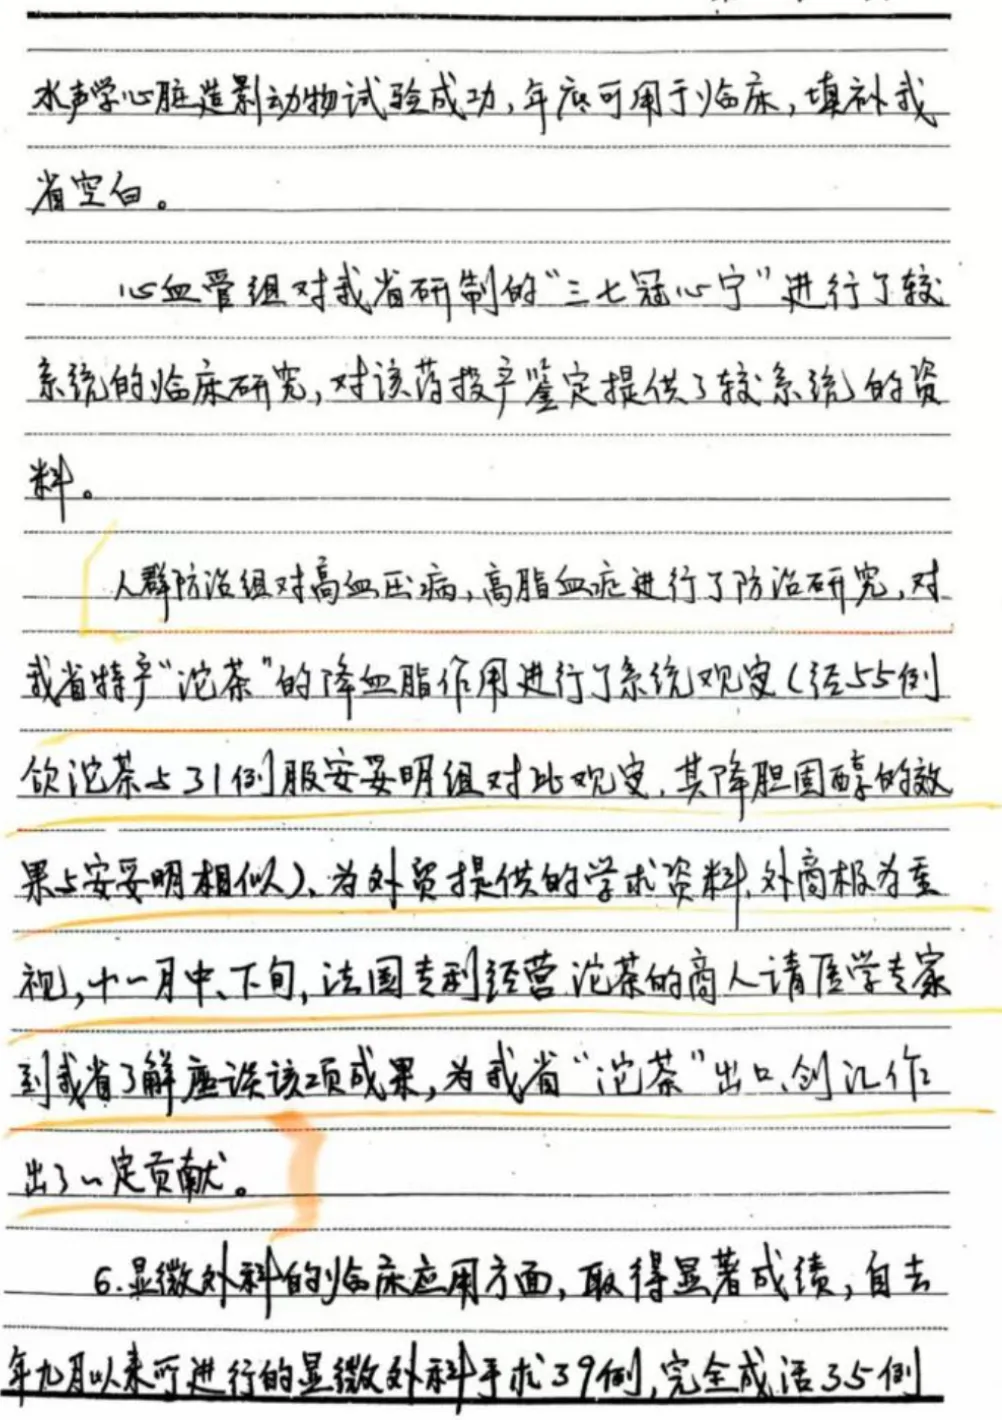 水声学心脏造影动物试验成功，年底可用于临床，填补我
省空白。
心血管组对我省研制的“三七冠心宁”进行了较
系统的临床研究，对该药投产鉴定提供了较系统的资
料。
人群防治组对高血压病，高脂血症进行了防治研究，对
我省特产“沱茶”的降血脂作用进行了系统观察（经55例
饮沱茶与31例服安妥明组对比观察，其降胆固醇的效
果与安妥明相似）、为外贸提供的学术资料，外商极为重
视，十一月中、下旬，法国专利经营沱茶的商人请医学专家
到我省了解座谈该项成果，为我省“沱茶”出口、创汇作
出了一定贡献。
6.显微外科的临床应用方面，取得显著成绩，自去
年九月以来所进行的显微外科手术39例，完全成活35例